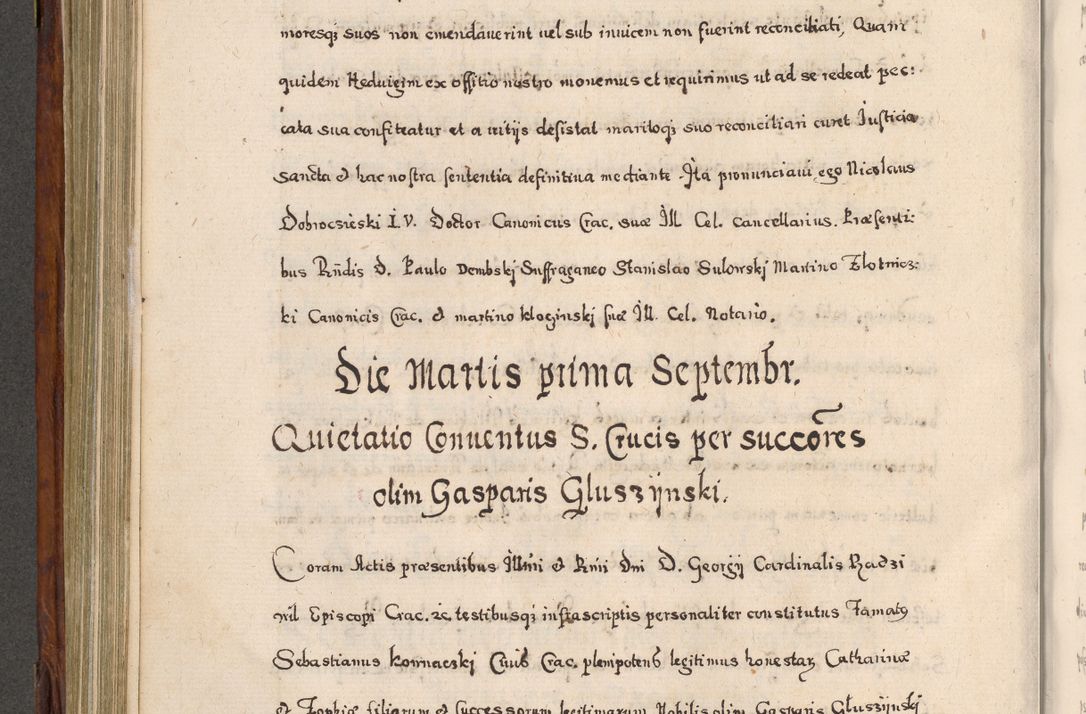 moresq₃ suos non emendauerint uel sub inuicem non fuerint reconciliati, Quam
quidem Heduigim ex offitio nostro monemus et requirimus ut ad se redeat pec:
cata sua confiteatur et a uitijs desistat maritoq₃ suo reconciliari curet Iusticia
Sancta & hac nostra sententia definitiua mediante. Ita pronunciaui, ego Nicolaus
Dobroczieski I. V. Doctor Canonicus Crac. suæ Ill Cel. Cancellarius. Præsenti:
bus Rñdis D. Paulo Dembskj Suffraganeo Stanislao Sulowskj Martino Zlotnicz:
ki Canonicis Crac. & martino kloczinskj suæ Ill. Cel. Notario.
Die Martis prima Septembr.
Quietatio Conuentus S. Crucis per succõres
olim Gasparis Gluszÿnski.
Coram Actis præsentibus Illmi & Rmi Dni D. Georgij Cardinalis Radzi
wil Episcopi Crac. &c. testibusq₃ infrascriptis personaliter constitutus Famatꝰ
Sebastianus kornaczki Ciuis Crac. plenipotens legitimus honestaꝝ Catharinæ
& Zophiæ filiarum & successorum legitimarum Nobilis olim Gasparis Gluszijnskj